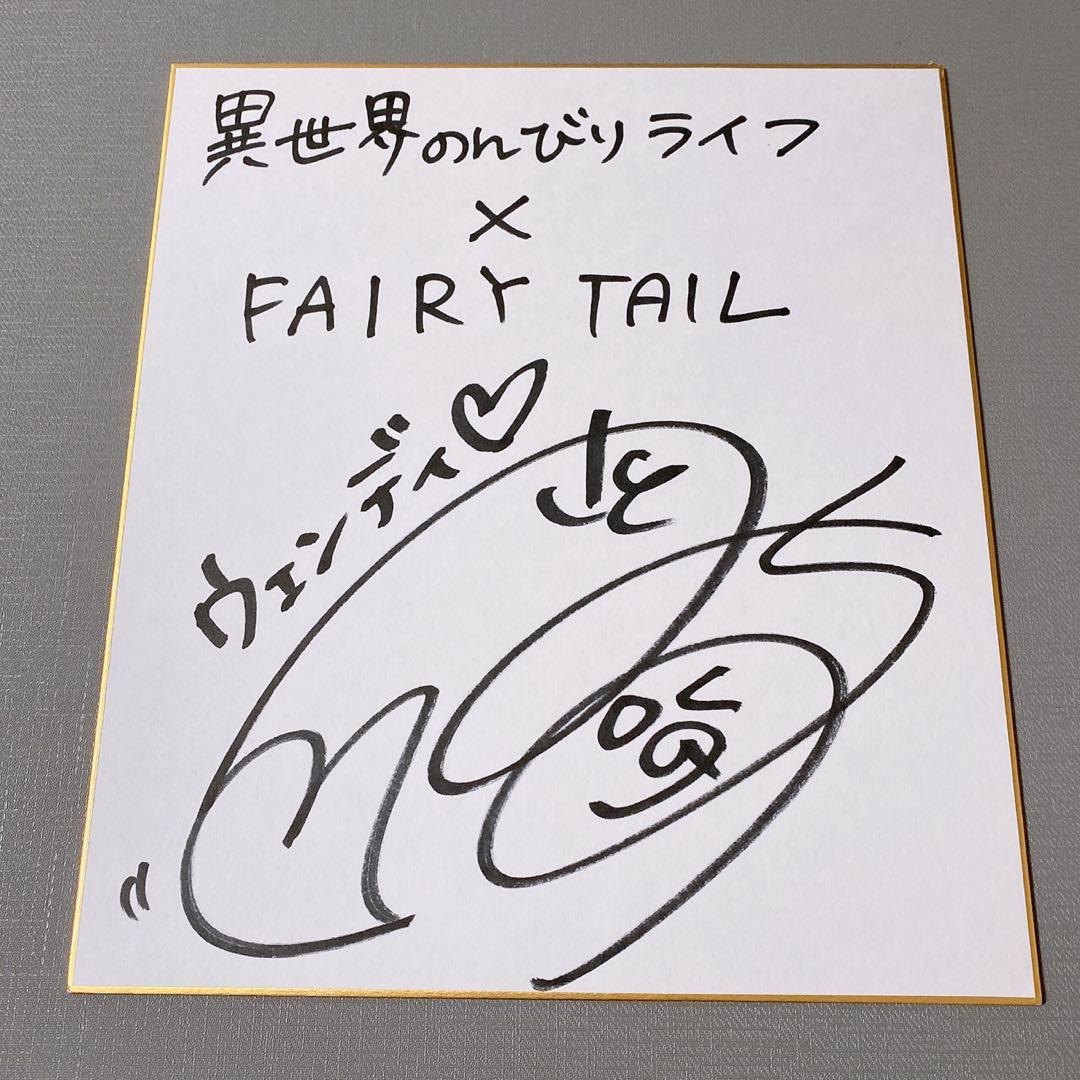 異世界のんびりライフ
×
FAIRY TAIL
ウェンディ♡